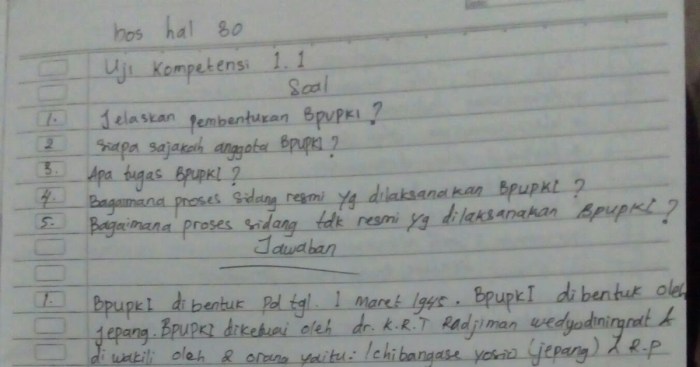 bos hal 80
Uji Kompetensi 1.1
Soal
1. Jelaskan pembentukan BPUPKI?
2 siapa sajakah anggota BPUPKI?
3. Apa tugas BPUPKI?
4. Bagaimana proses sidang resmi yg dilaksanakan BPUPKI?
5. Bagaimana proses sidang tdk resmi yg dilaksanakan BPUPKI?
Jawaban
1. BPUPKI dibentuk pd tgl. 1 maret 1945. BPUPKI dibentuk oleh
jepang. BPUPKI diketuai oleh dr. K.R.T Radjiman wedyodiningrat &
di wakili oleh 2 orang yaitu: Ichibangase yosio (jepang) & R.P